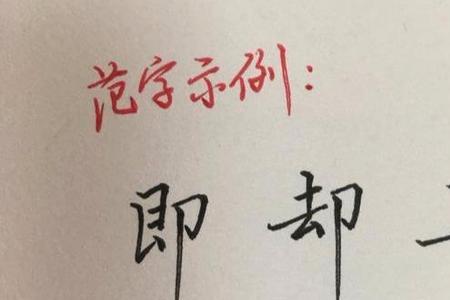 范字示例：
即却